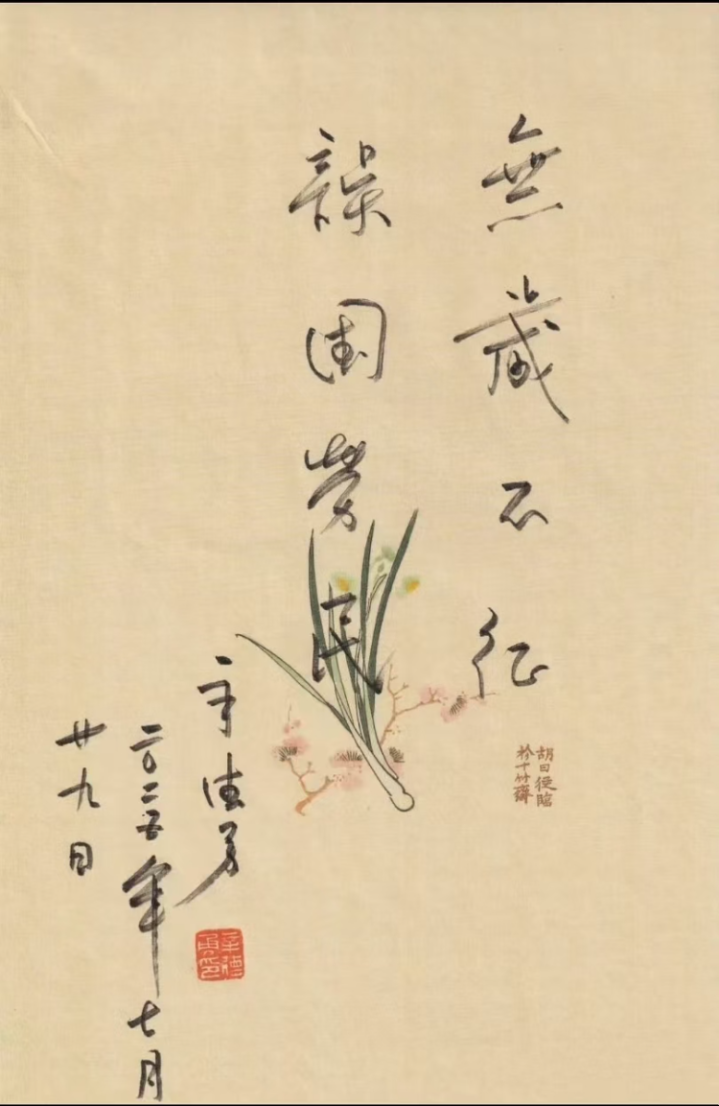 無歲不征
誤國勞民
辛德勇
二〇二五年七月
廿九日
胡曰從臨
於十竹齋
辛德
勇印